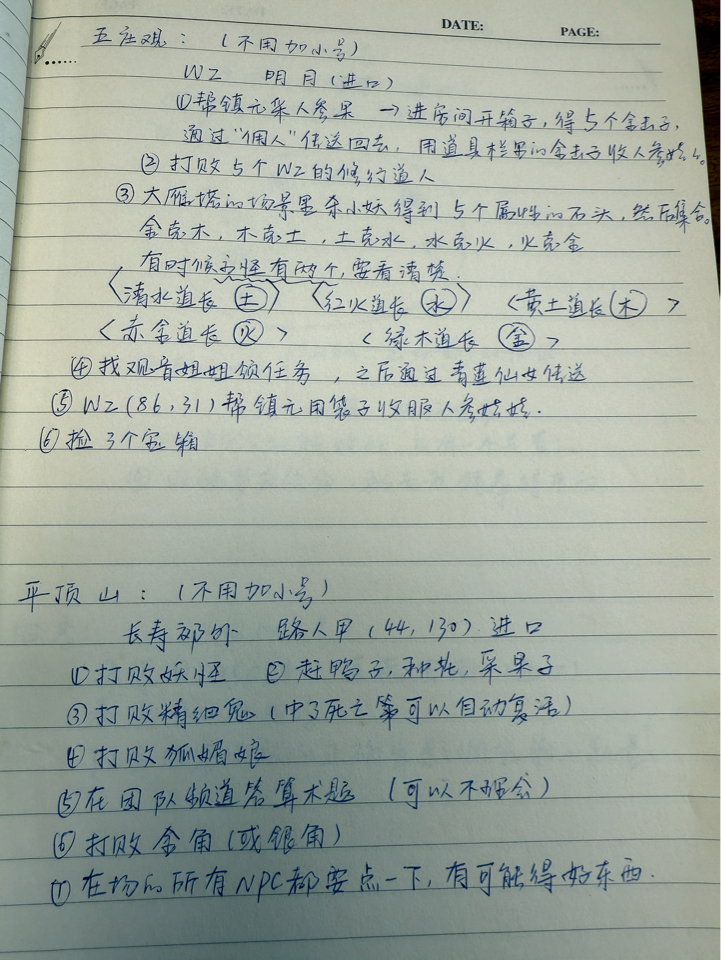 DATE: PAGE:
五庄观：（不用加小号）
WZ 明月（进口）
①帮镇元采人参果 →进房间开箱子，得5个金击子，
通过“佣人”传送回去，用道具栏里的金击子收人参娃娃。
②打败5个WZ的修行道人
③大雁塔的场景里杀小妖得到5个属性的石头，然后集合。
金克木，木克土，土克水，水克火，火克金
有时候主怪有两个，要看清楚.
〈清水道长 土〉 〈红火道长 水〉 〈黄土道长 木〉
〈赤金道长 火〉 〈绿木道长 金〉
④找观音姐姐领任务，之后通过青莲仙女传送
⑤WZ（86，31）帮镇元用袋子收服人参娃娃.
⑥捡3个宝箱
平顶山：（不用加小号）
长寿郊外 路人甲（44，130）.进口
①打败妖怪 ②赶鸭子，种花，采果子
③打败精细鬼（中了死亡第可以自动复活）
④打败狐媚娘
⑤在团队频道答算术题 （可以不理会）
⑥打败金角（或银角）
⑦在场的所有NPC都要点一下，有可能得好东西.